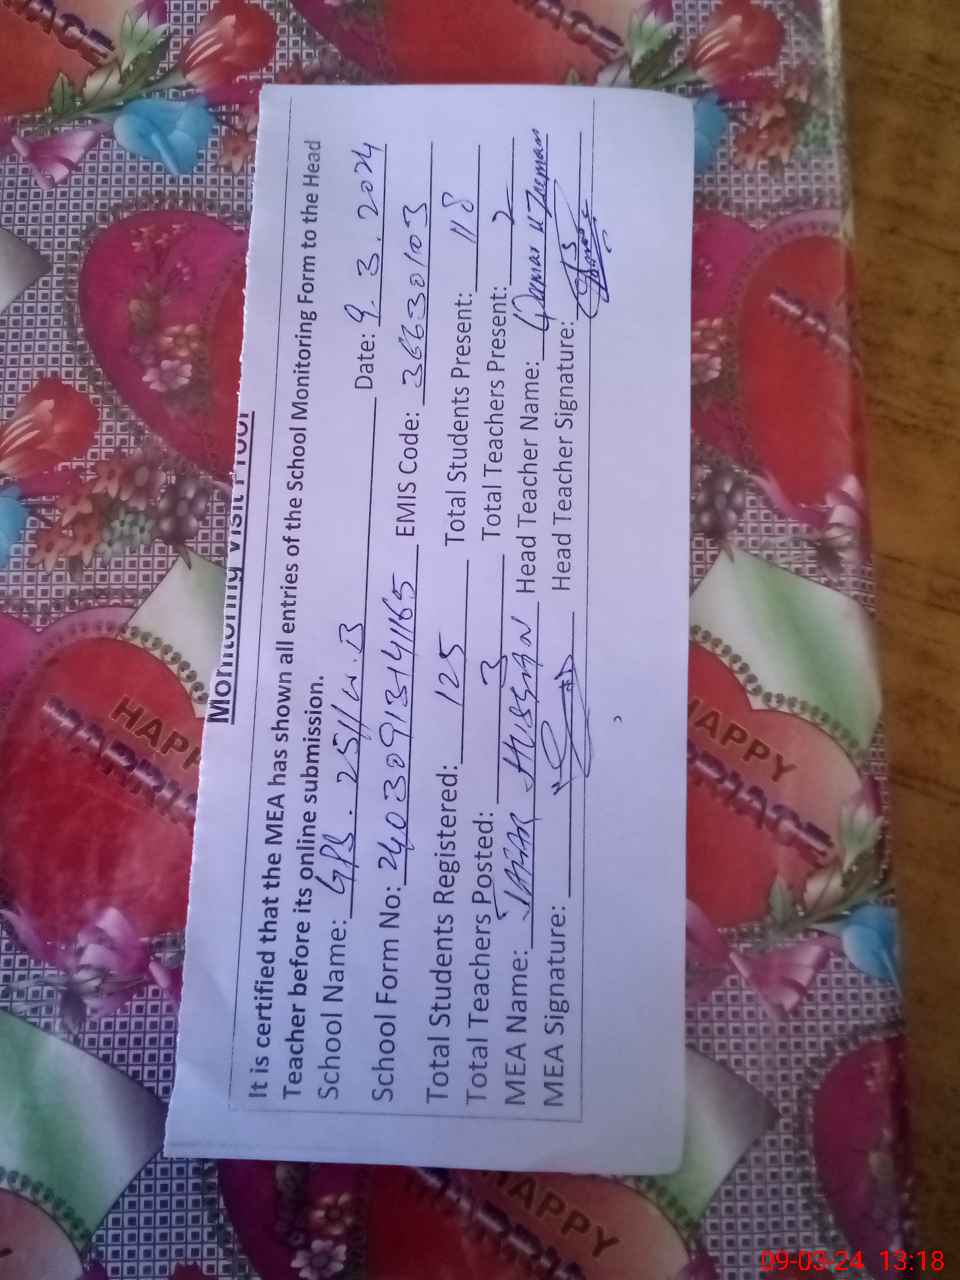 Monitoring Visit Proof
It is certified that the MEA has shown all entries of the School Monitoring Form to the Head
Teacher before its online submission.
School Name: GPS. 251/W.B Date: 9.3.2024
School Form No: 2403091314165 EMIS Code: 36630103
Total Students Registered: 125 Total Students Present: 118
Total Teachers Posted: 3 Total Teachers Present: 2
MEA Name: JAFAR HUSSAIN Head Teacher Name: Qamar u Zaman
MEA Signature: Head Teacher Signature:
HAPPY
MARRIAGE
HAPPY
MARRIAGE
HAPPY
MARRIAGE
09-03-24 13:18